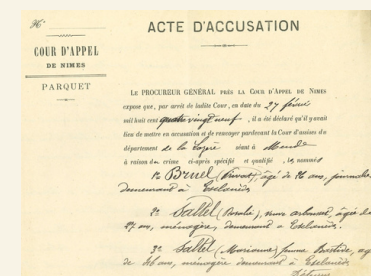 ACTE D'ACCUSATION
COUR D'APPEL
DE NIMES
PARQUET
LE PROCUREUR GÉNÉRAL PRÈS LA COUR D'APPEL DE NIMES
expose que, par arrêt de ladite Cour, en date du 27 février
mil huit cent quatre vingt neuf, il a été déclaré qu'il y avait
lieu de mettre en accusation et de renvoyer pardevant la Cour d'assises du
département de la Lozère séant à Mende
à raison du crime ci-après spécifié et qualifié, les nommés
1° Bruel (Privat), âgé de 26 ans, journalier
demeurant à Esclanèdes
2° Sallel (Rosalie), âgée de
27 ans, ménagère, demeurant à Esclanèdes.
3° Sallel (Marianne) femme Bastide, agée
de ans, ménagère demeurant à Esclanèdes